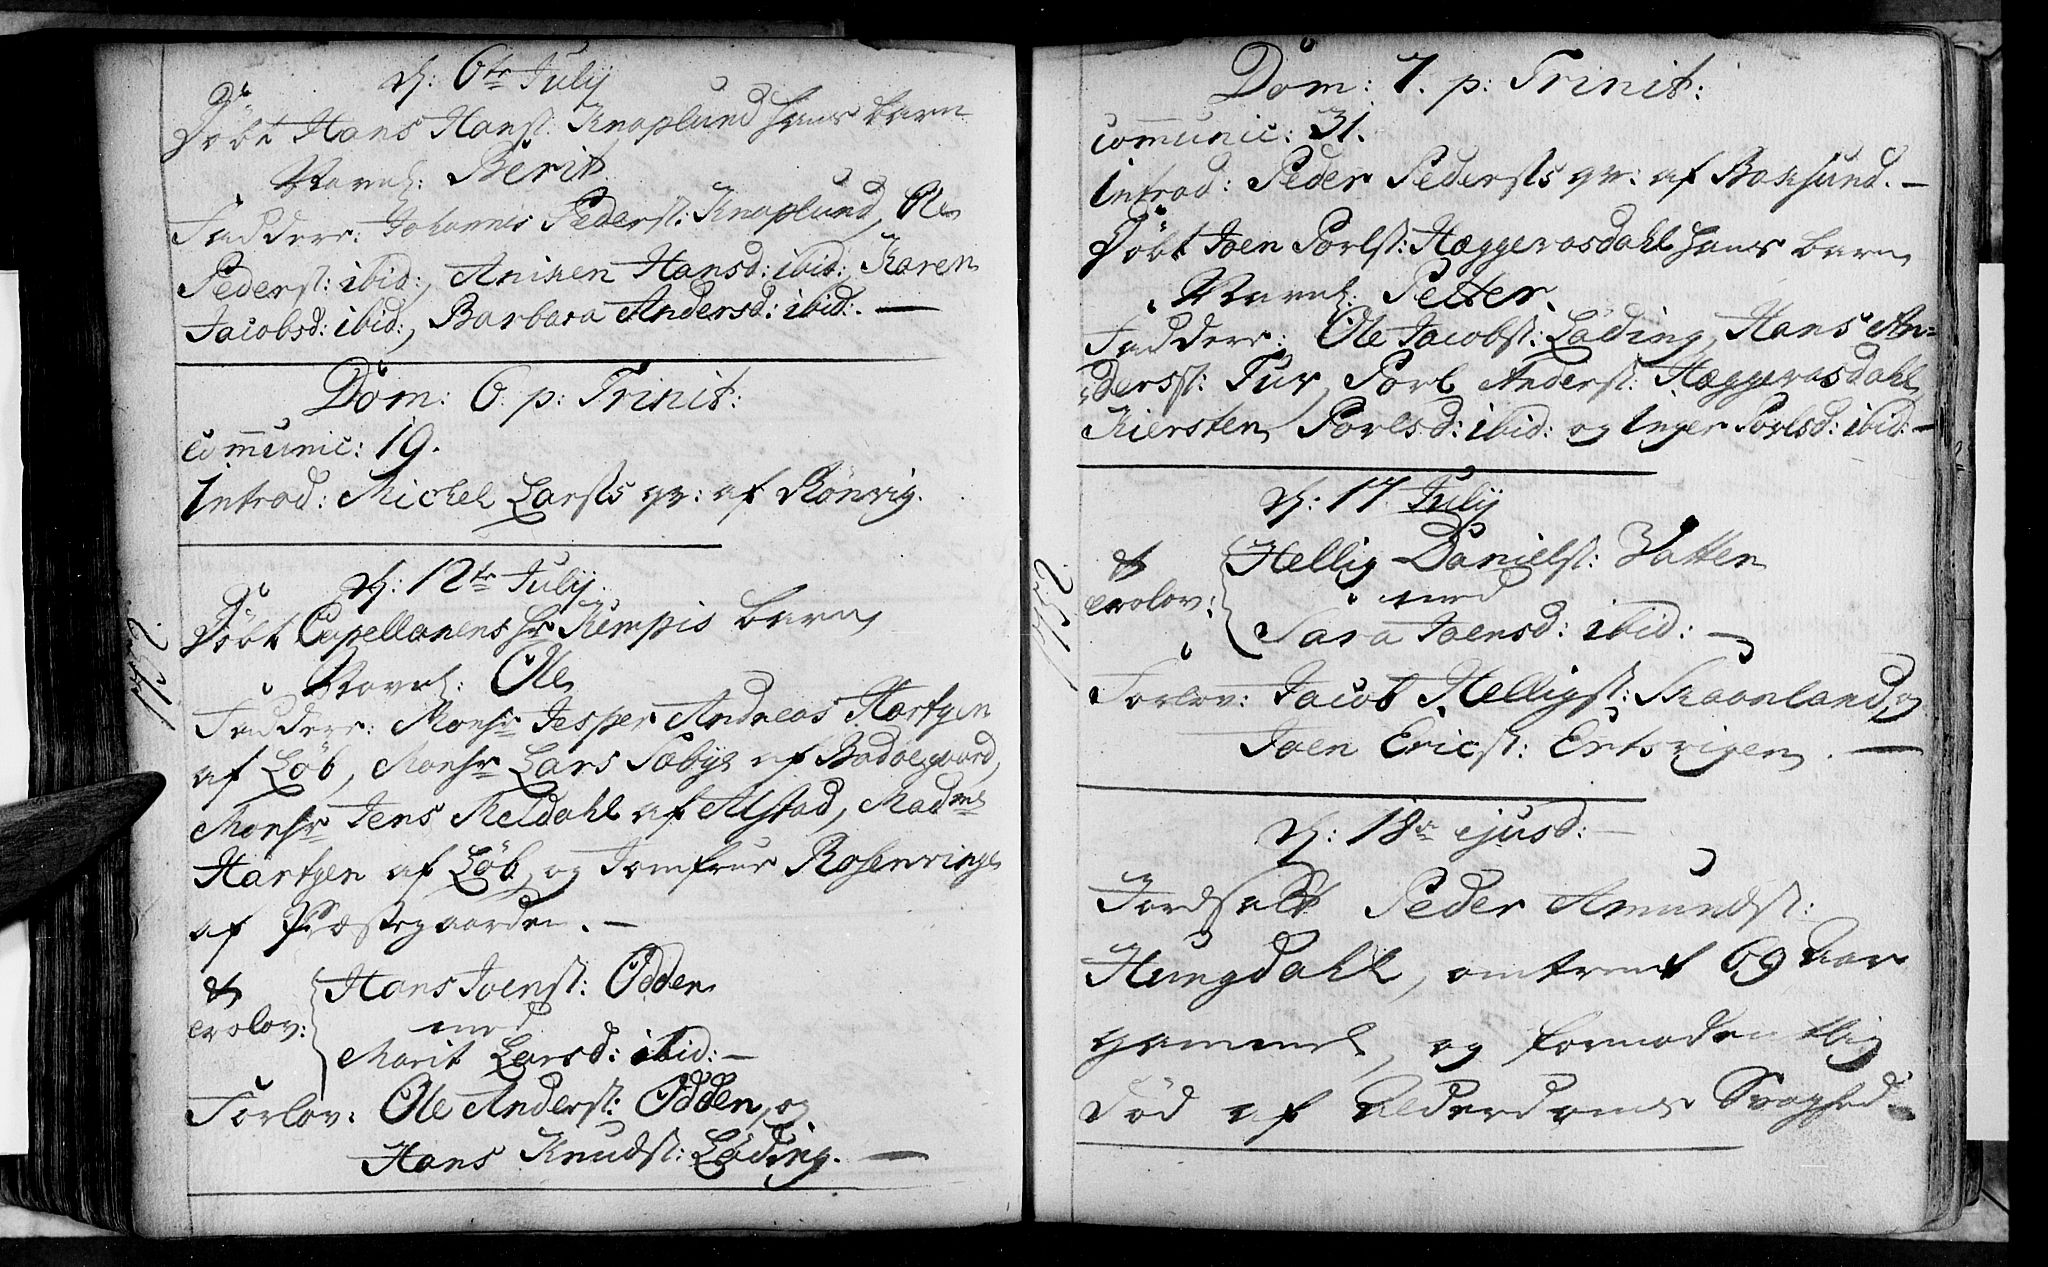 d: 6te July
Döbt Hans Hanss: Knaplund hans barn
Navnl: Berit.
Faddere: Johannes Pederss: Knaplund, Ole
Pederss: ibid:, Aniken Hansd: ibid:, Karen
Jacobsd: ibid:, Barbara Andersd: ibid:. —
Dom: 6. p: Trinit:
communic: 19.
Introd: Michel Larsens qv: af Rönvig.
1752.
d: 12te July.
Döbt Capellanens hr Kempis barn
Navnl: Ole
Faddere: Monsr Jesper Andreas Hartgen
af Löb, Monsr Lars Sæbye af Bodöegaard,
Monsr Jens Meldahl af Alstad, Madme
Hartgen af Löb, og Jomfrue Rosenvinge
af Præstegaarden. —
Hans Joenss: Odden
trolov: med
Marit Larsd: ibid: —
Forlov: Ole Anderss: Odden, og
Hans Knudss: Löding. —
Dom: 7. p: Trinit:
communic: 31.
Introd: Peder Pedersens qv: af Boksund. —
Döbt Joen Porlss: Hæggemosdahl hans barn
Navnl: Petter.
Faddere: Ole Jacobss: Löding, Hans An=
=derss: Tuv, Porl Anderss: Hæggemosdahl,
Kiersten Porlsd: ibid: og Inger Porlsd: ibid: —
1752.
d: 17 July
Hellig Danielss: Vatten
trolov: med
Sara Joensd: ibid: —
Forlov: Jacob Helligss: Skaanland, og
Joen Ericss: Ertsvigen. —
d: 18de ejusd: —
Jordfæst Peder Amundss:
Hungdahl, omtrent 69 Aar
gammel, og formodentlig
död af Alderdoms Svaghed.